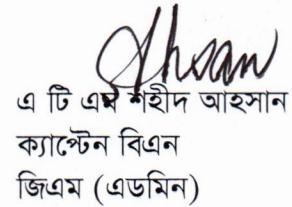 Ahsan
এ টি এম শহীদ আহসান
ক্যাপ্টেন বিএন
জিএম (এডমিন)